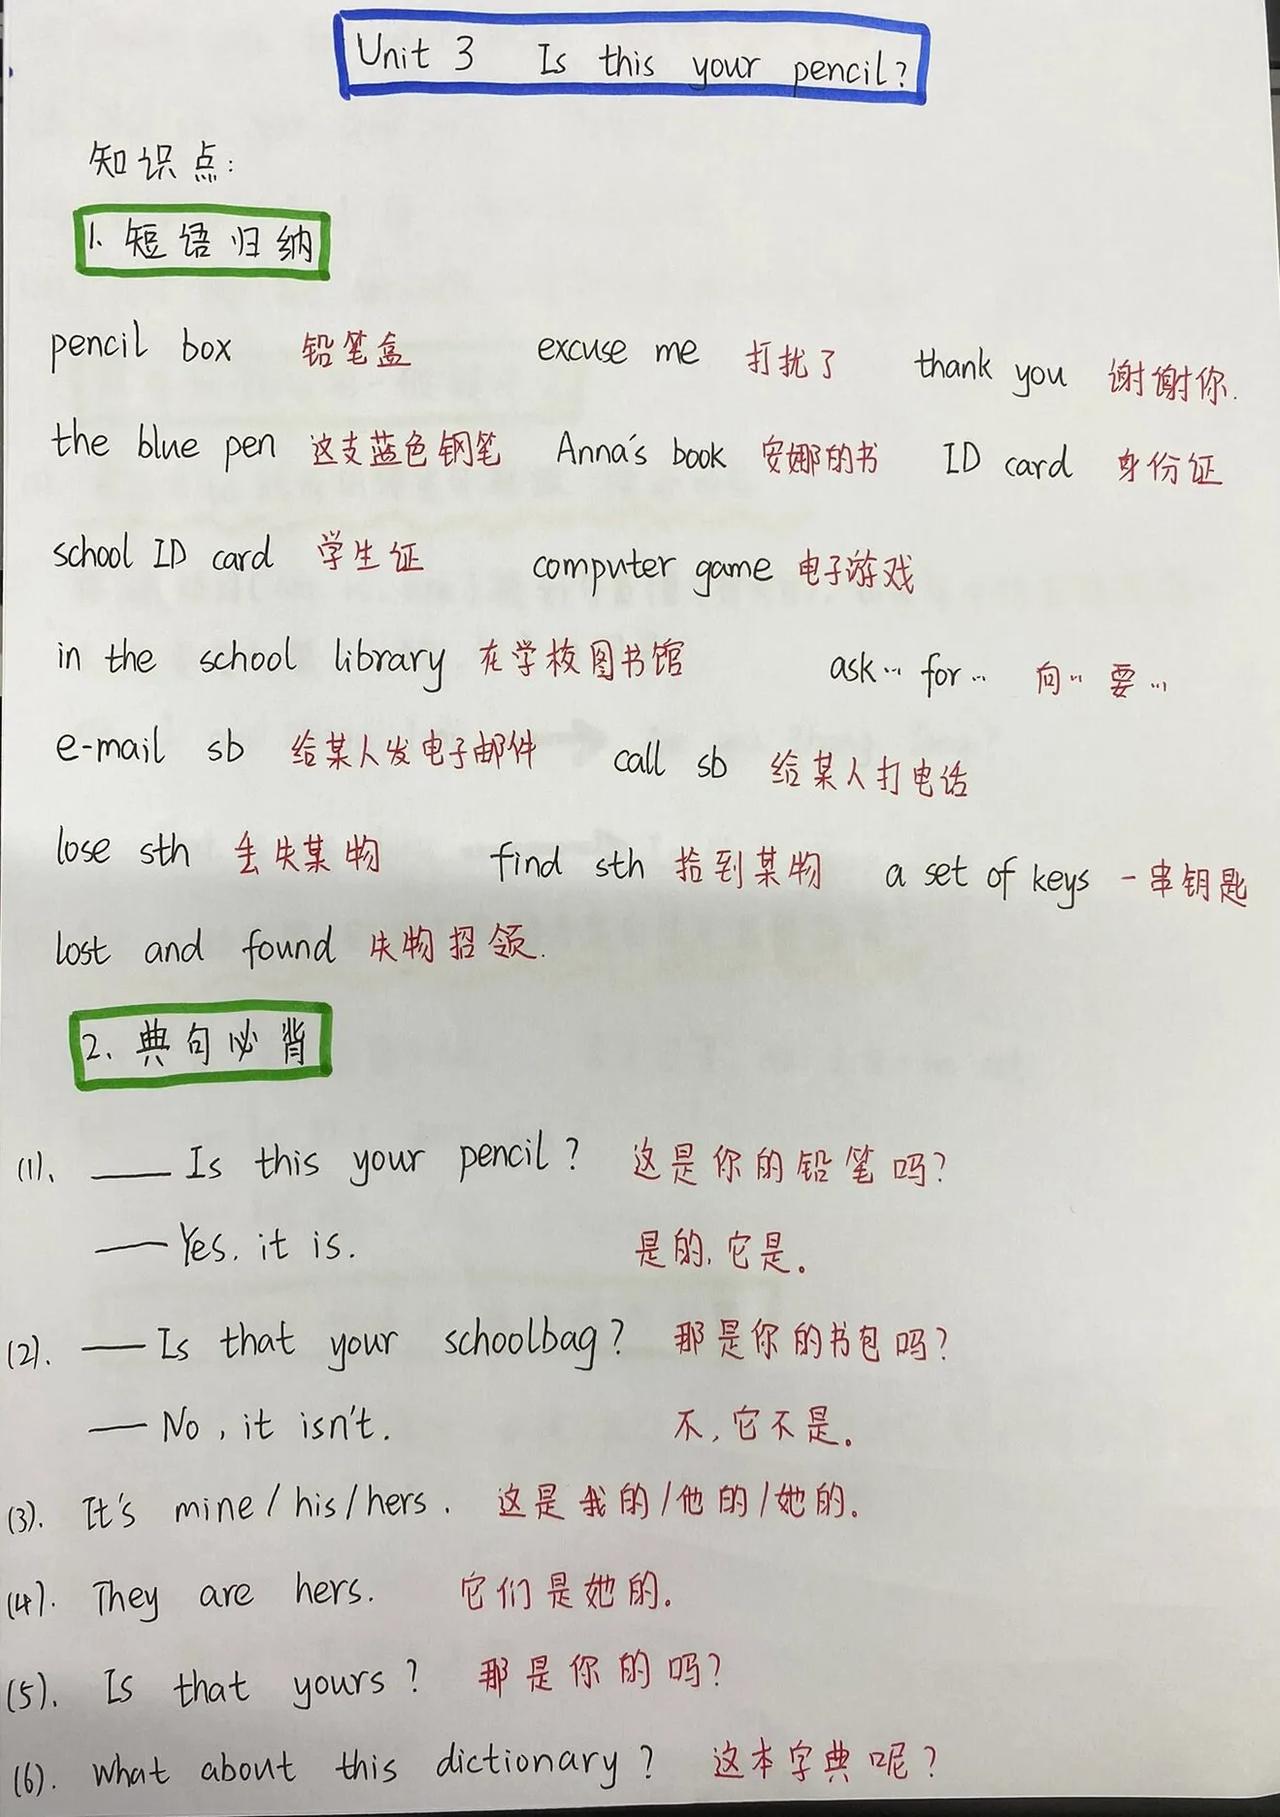 Unit 3 Is this your pencil?
知识点:
1. 短语归纳
pencil box 铅笔盒 excuse me 打扰了 thank you 谢谢你.
the blue pen 这支蓝色钢笔 Anna's book 安娜的书 ID card 身份证
school ID card 学生证 computer game 电子游戏
in the school library 在学校图书馆 ask… for… 向… 要…
e-mail sb 给某人发电子邮件 call sb 给某人打电话
lose sth 丢失某物 find sth 拾到某物 a set of keys 一串钥匙
lost and found 失物招领.
2. 典句必背
(1). —— Is this your pencil? 这是你的铅笔吗?
—— Yes. it is. 是的,它是。
(2). —— Is that your schoolbag? 那是你的书包吗?
—— No, it isn't. 不,它不是。
(3). It's mine/his/hers. 这是我的/他的/她的。
(4). They are hers. 它们是她的。
(5). Is that yours? 那是你的吗?
(6). What about this dictionary? 这本字典呢?